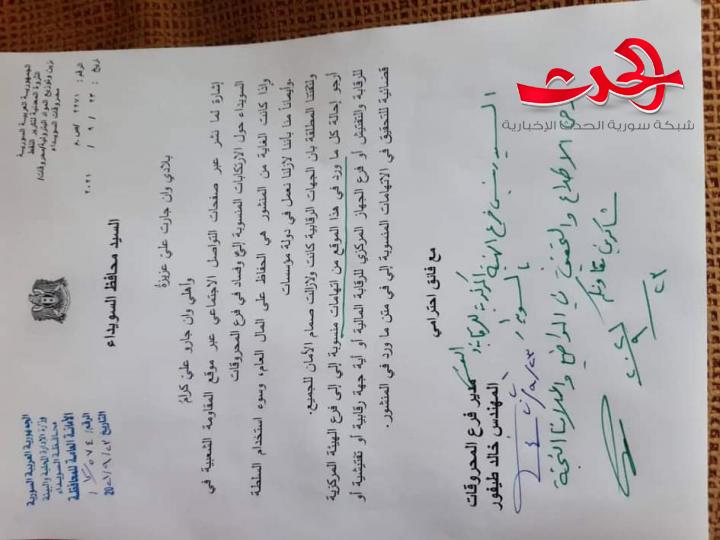 الجمهورية العربية السورية
الثروة المعدنية لتكرير النفط
تخزين وتوزيع المواد البترولية/محروقات/
محروقات السويداء
الرقم : ٢٢٧١ /ص.م
تاريخ : ٢٣ / ٩ / ٢٠٢١
الجمهورية العربية السورية
وزارة الإدارة المحلية والبيئة
محافظة السويداء
الأمانة العامة للمحافظة
الرقم:
التاريخ
السيد محافظ السويداء
بلادي وإن جارت علي عزيزة
وأهلي وإن جارو علي كرام
إشارة لما نشر عبر صفحات التواصل الاجتماعي عبر موقع المقاومة الشعبية في
السويداء حول الارتكابات المنسوبة إلي وفساد في فرع المحروقات
وإذا كانت الغاية من المنشور هي الحفاظ على المال العام، وسوء استخدام السلطة
وإيماناً منا بأننا لازلنا نعمل في دولة مؤسسات
ولثقتنا المطلقة بأن الجهات الرقابية كانت ولازالت صمام الأمان للجميع.
أرجو إحالة كل ما ورد في هذا الموقع من اتهامات منسوبة إلي إلى فرع الهيئة المركزية
للرقابة والتفتيش أو فرع الجهاز المركزي للرقابة المالية أو أية جهة رقابية أو تفتيشية أو
قضائية للتحقيق في الاتهامات المنسوبة إلي في متن ما ورد في المنشور.
مع فائق احترامي
مدير فرع المحروقات
المهندس خالد طيفور
السيد رئيس فرع الهيئة المركزية للرقابة
بالسويداء
الاطلاع والتحقيق في المواضيع وإعلامنا النتيجة
شاكرين تعاونكم
٢٣
٩
الحدث
شبكة سورية الحدث الإخبارية